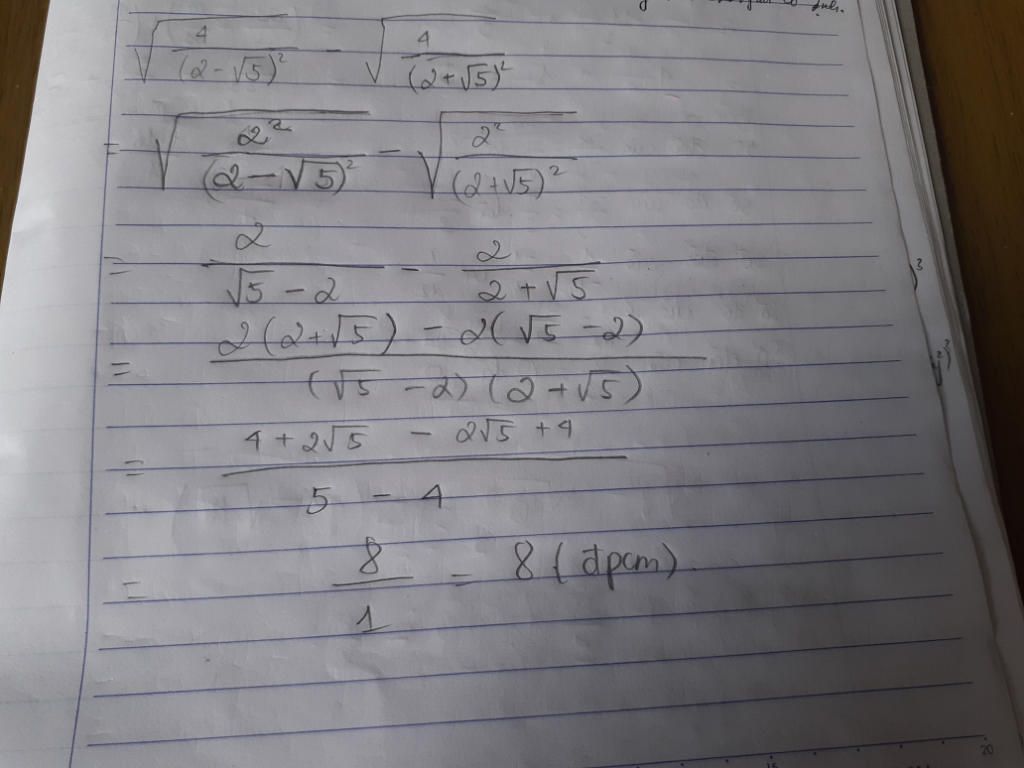 √(4/(2-√5)²) - √(4/(2+√5)²)
= √(2²/(2-√5)²) - √(2²/(2+√5)²)
= 2/(√5-2) - 2/(2+√5)
= (2(2+√5) - 2(√5-2))/((√5-2)(2+√5))
= (4+2√5 - 2√5+4)/(5-4)
= 8/1 = 8 (đpcm).
15 20